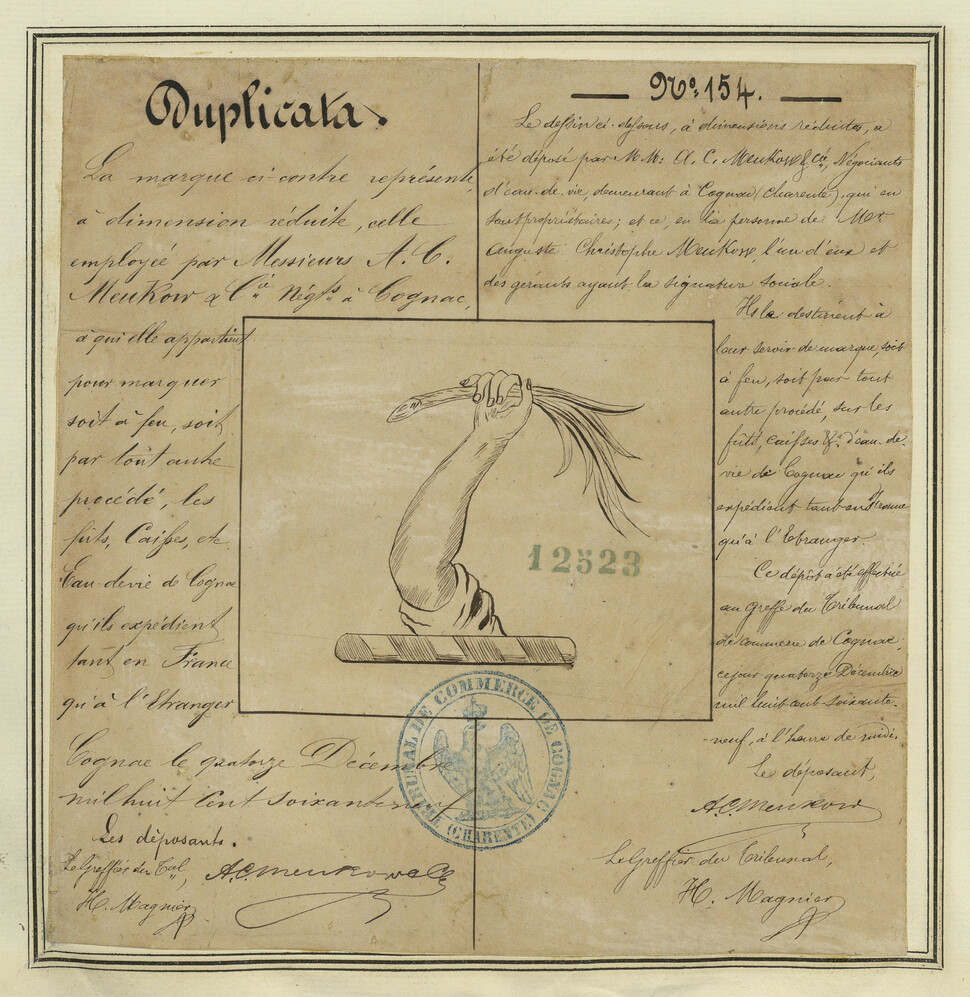 Duplicata.
La marque ci-contre représente,
à dimension réduite, celle
employée par Messieurs A. C.
Meukow & Cie Négts à Cognac,
à qui elle appartient
pour marquer
soit à feu, soit
par tout autre
procédé, les
fûts, Caisses, etc
Eau-de-vie de Cognac
qu'ils expédient
tant en France
qu'à l'Etranger
Cognac le quatorze Décembre
mil huit cent soixante neuf
Les déposants.
Le Greffier du Tal,
A. C. Meukow & Co
H. Magnier
No. 154.
Le dessin ci-dessous, à dimensions réduites, a
été déposé par MM: A. C. Meukow & Co, Négociants
d'eau-de-vie, demeurant à Cognac (Charente), qui en
sont propriétaires; et ce, en la personne de Mer
Auguste Christophe Meukow, l'un d'eux et
des gérants ayant la signature sociale.
Ils la destinent à
leur servir de marque, soit
à feu, soit par tout
autre procédé, sur les
fûts, caisses &a. d'eau-de-
vie de Cognac qu'ils
expédient tant en France
qu'à l'Etranger.
Ce dépôt a été effectué
au Greffe du Tribunal
de commerce de Cognac,
ce jour quatorze Décembre
mil huit cent soixante-
neuf, à l'heure de midi.
Le déposant,
A. C. Meukow
Le Greffier du Tribunal,
H. Magnier
12523
TRIBUNAL DE COMMERCE DE COGNAC
(CHARENTE)